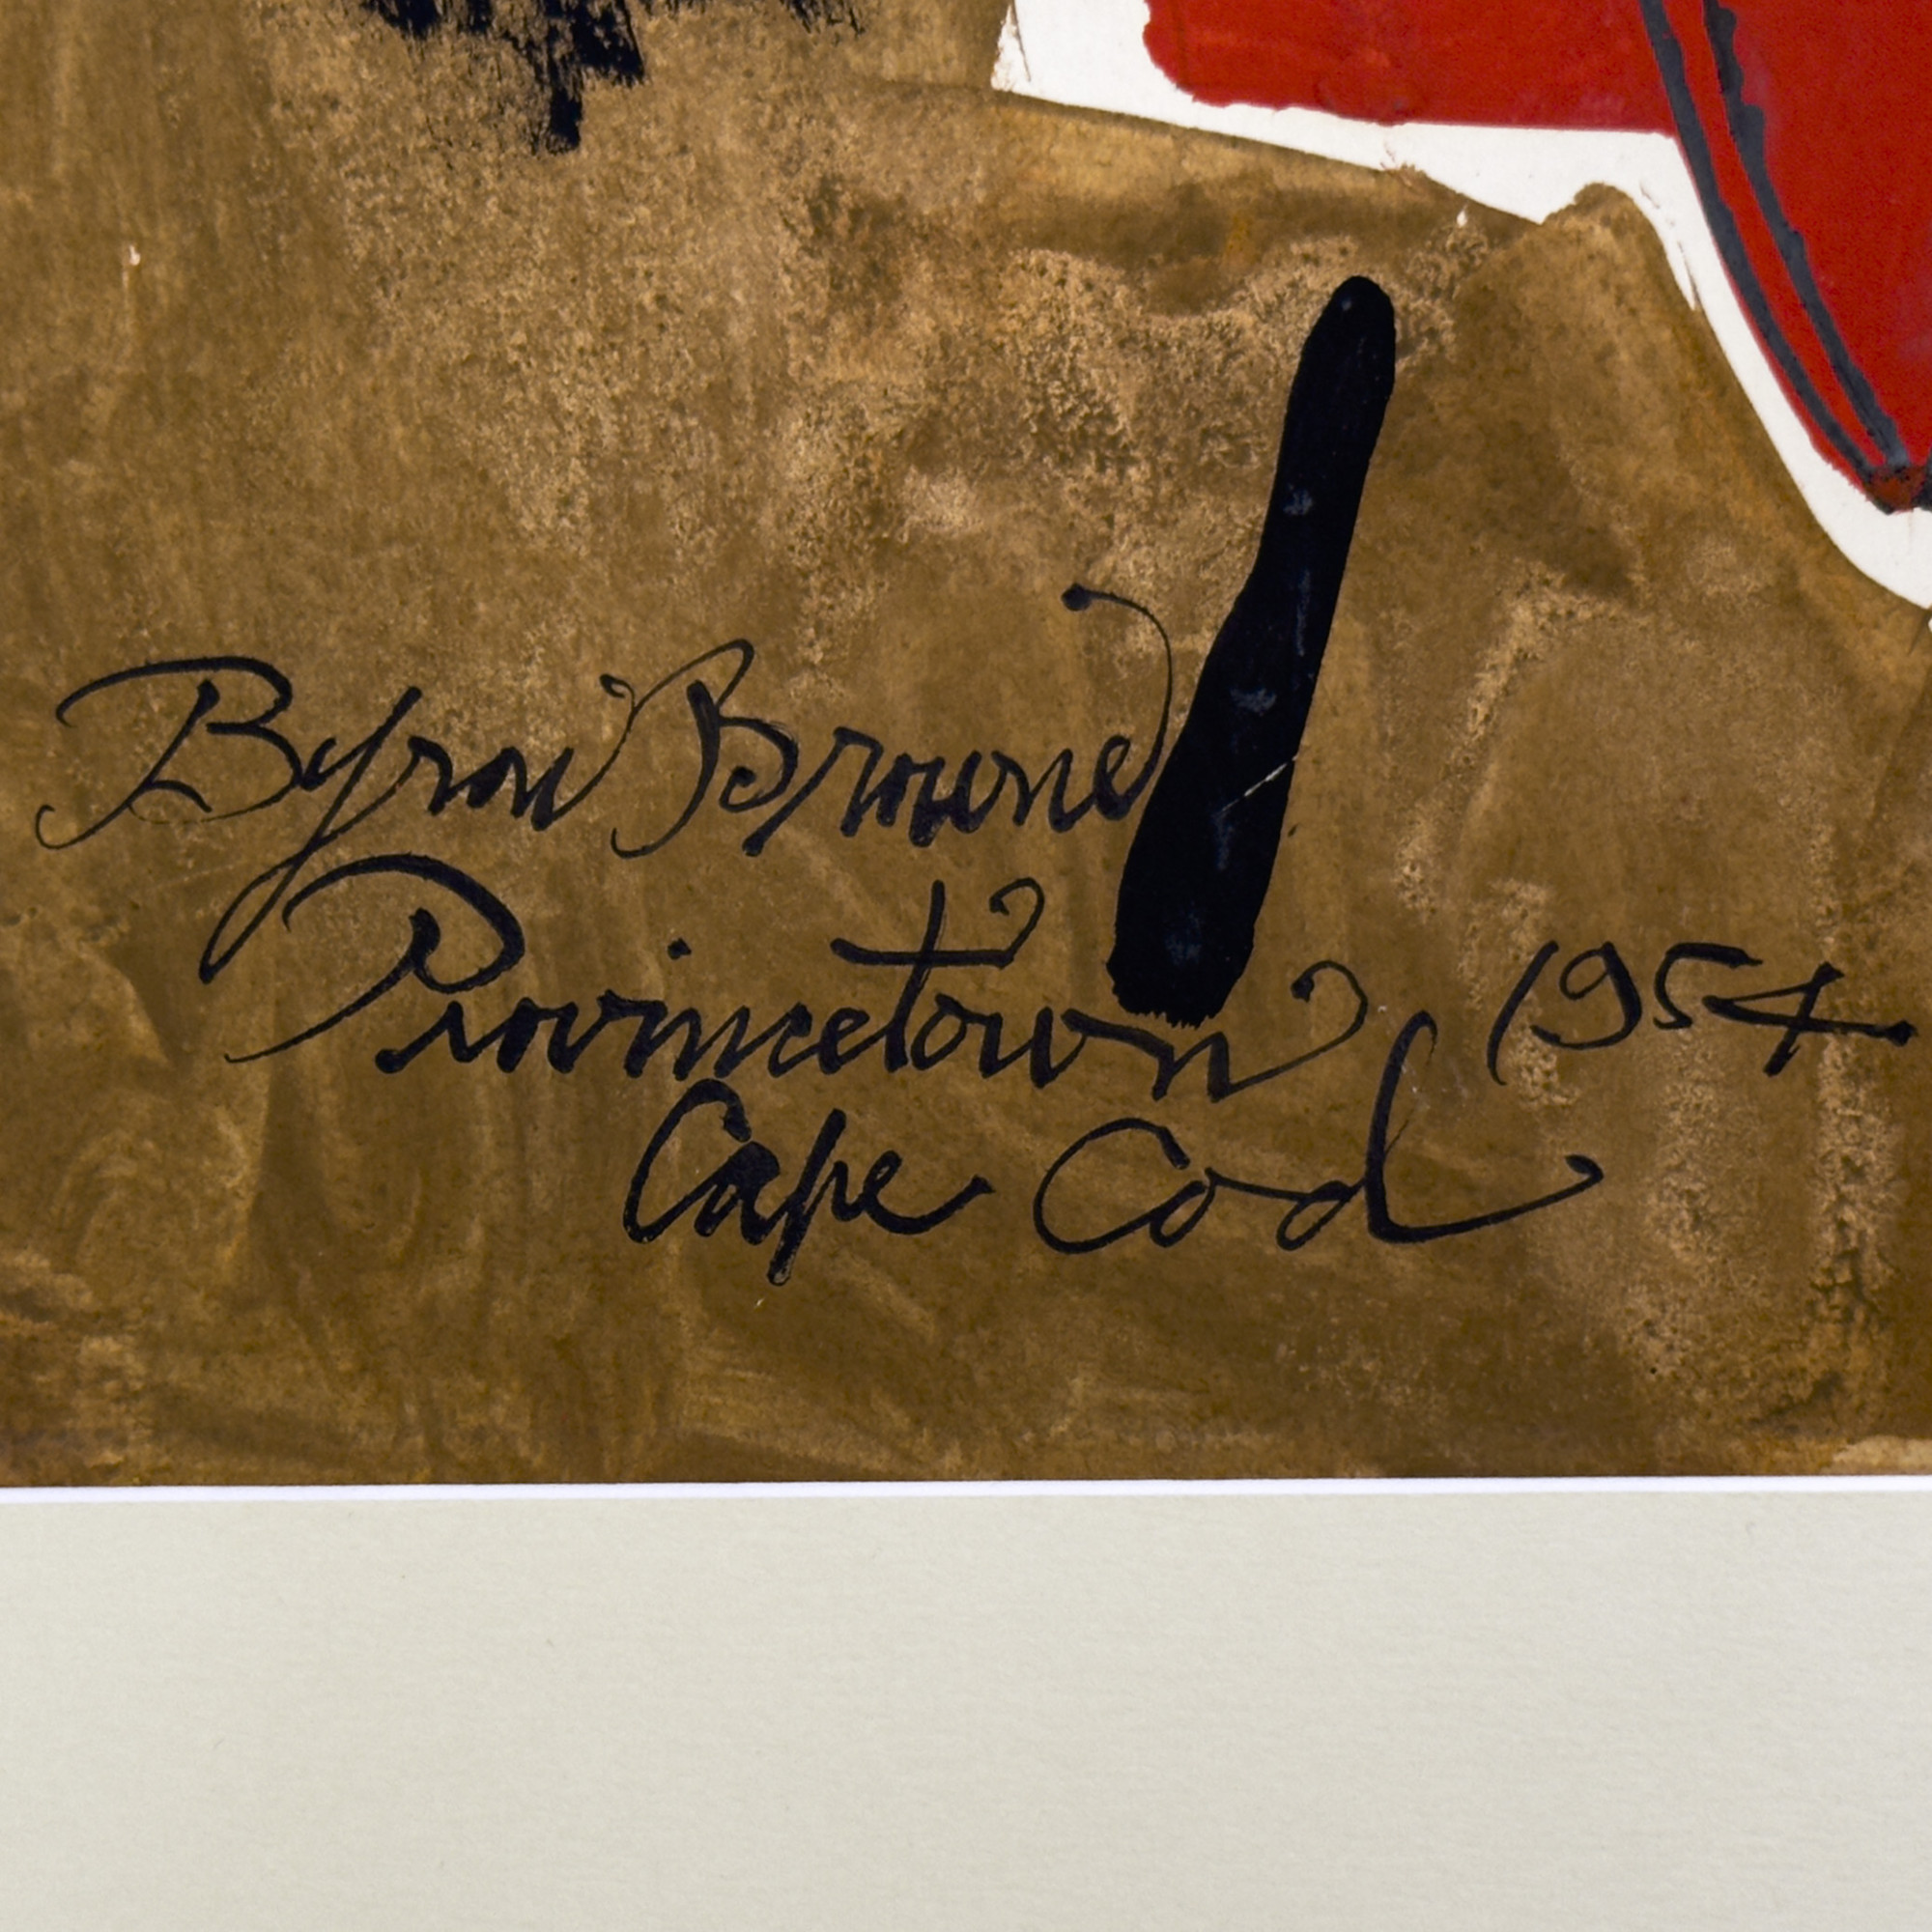 Byron Browne
Provincetown 1954
Cape Cod